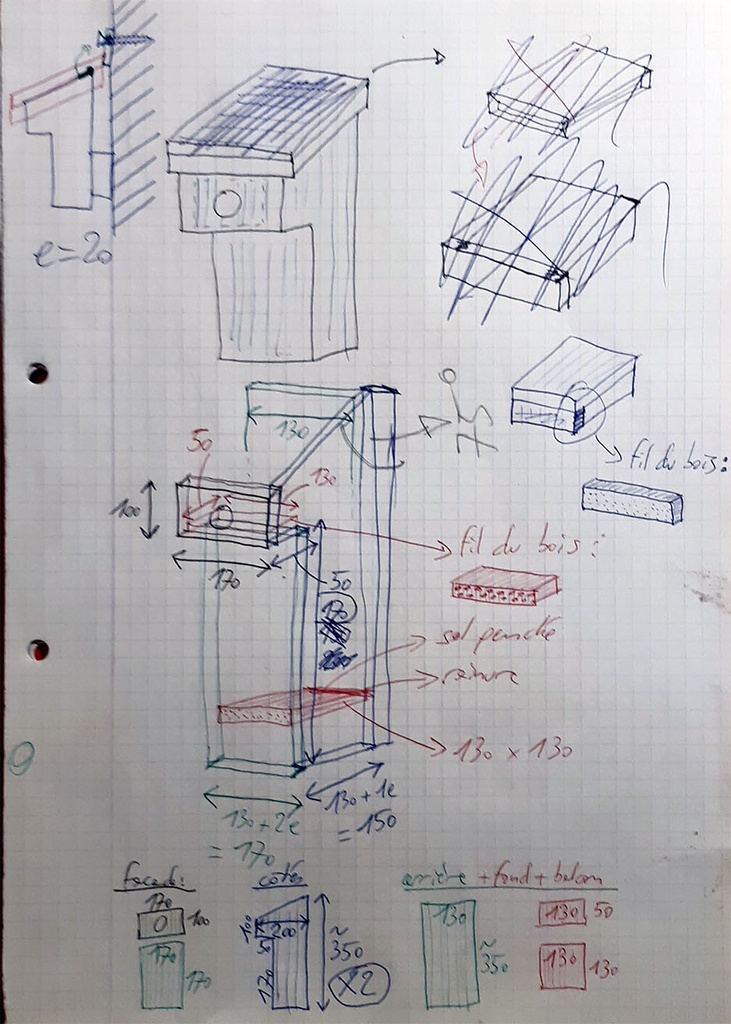 e=20
130
75°
fil du bois :
50
130
100
170
fil du bois :
50
170
sol penché
rainure
130 x 130
130+2e
= 170
130+1e
= 150
façade :
170
100
170
170
côtés
100
200
50
170
~
350
x2
arrière + fond + balcon
130
~
350
130
50
130
130